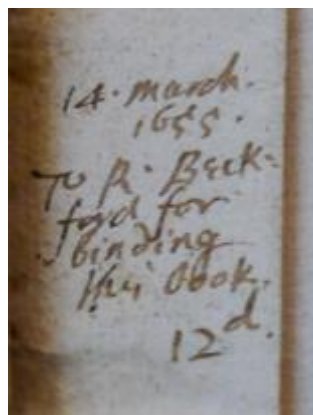 14. march.
1655.
To R. Beck-
ford for
binding
this book.
12 d.